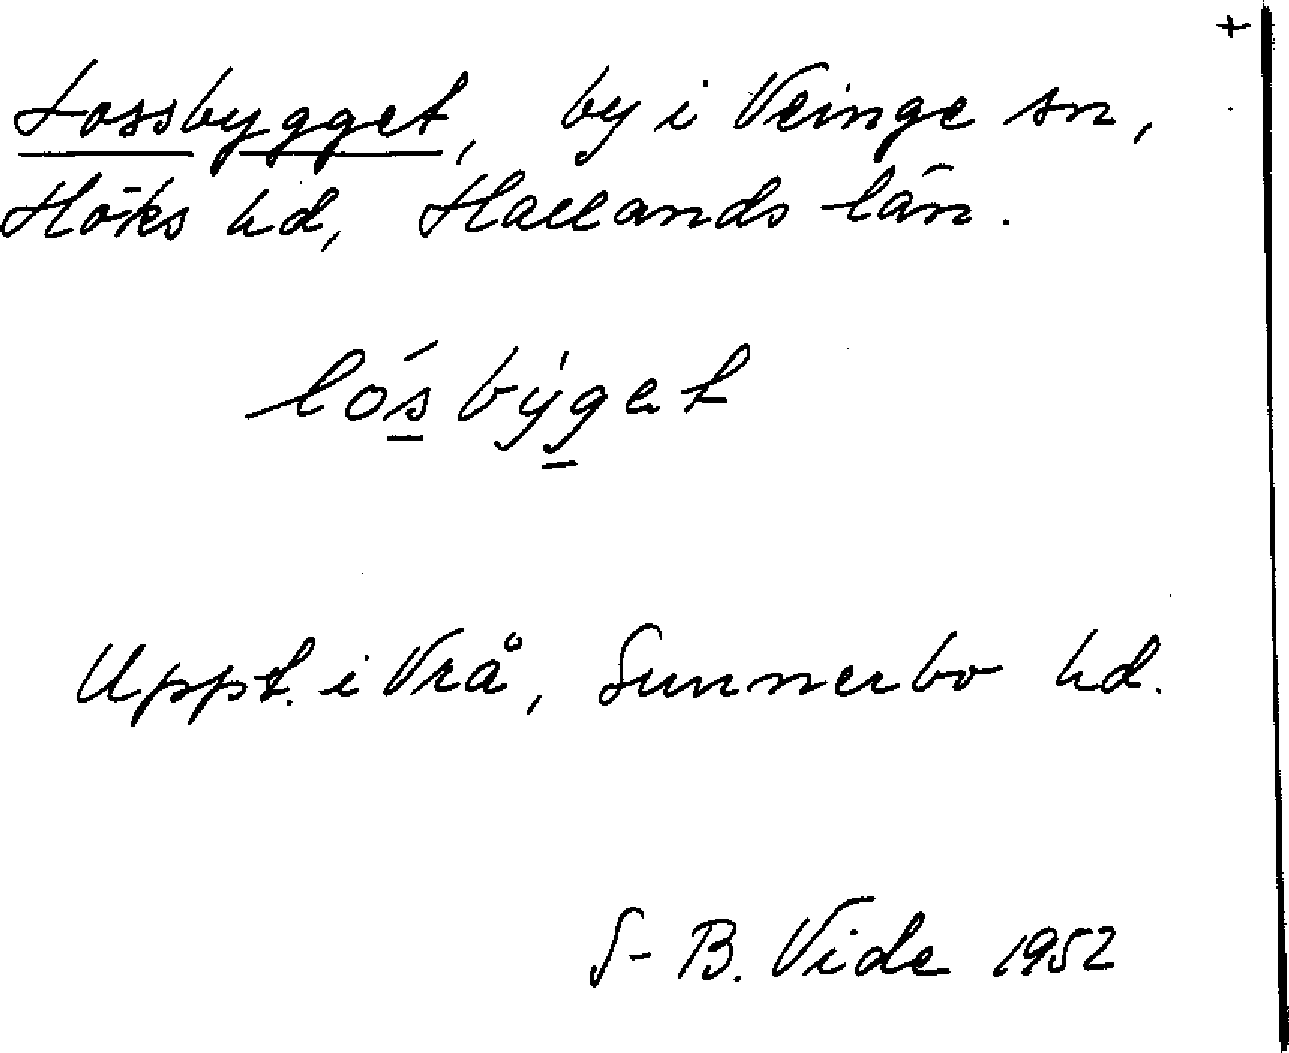 +
Lossbygget, by i Veinge sn,
Höks hd, Hallands län.
lós̱ býg̱et
Uppt. i Vrå, Sunnerbo hd.
S-B. Vide 1952